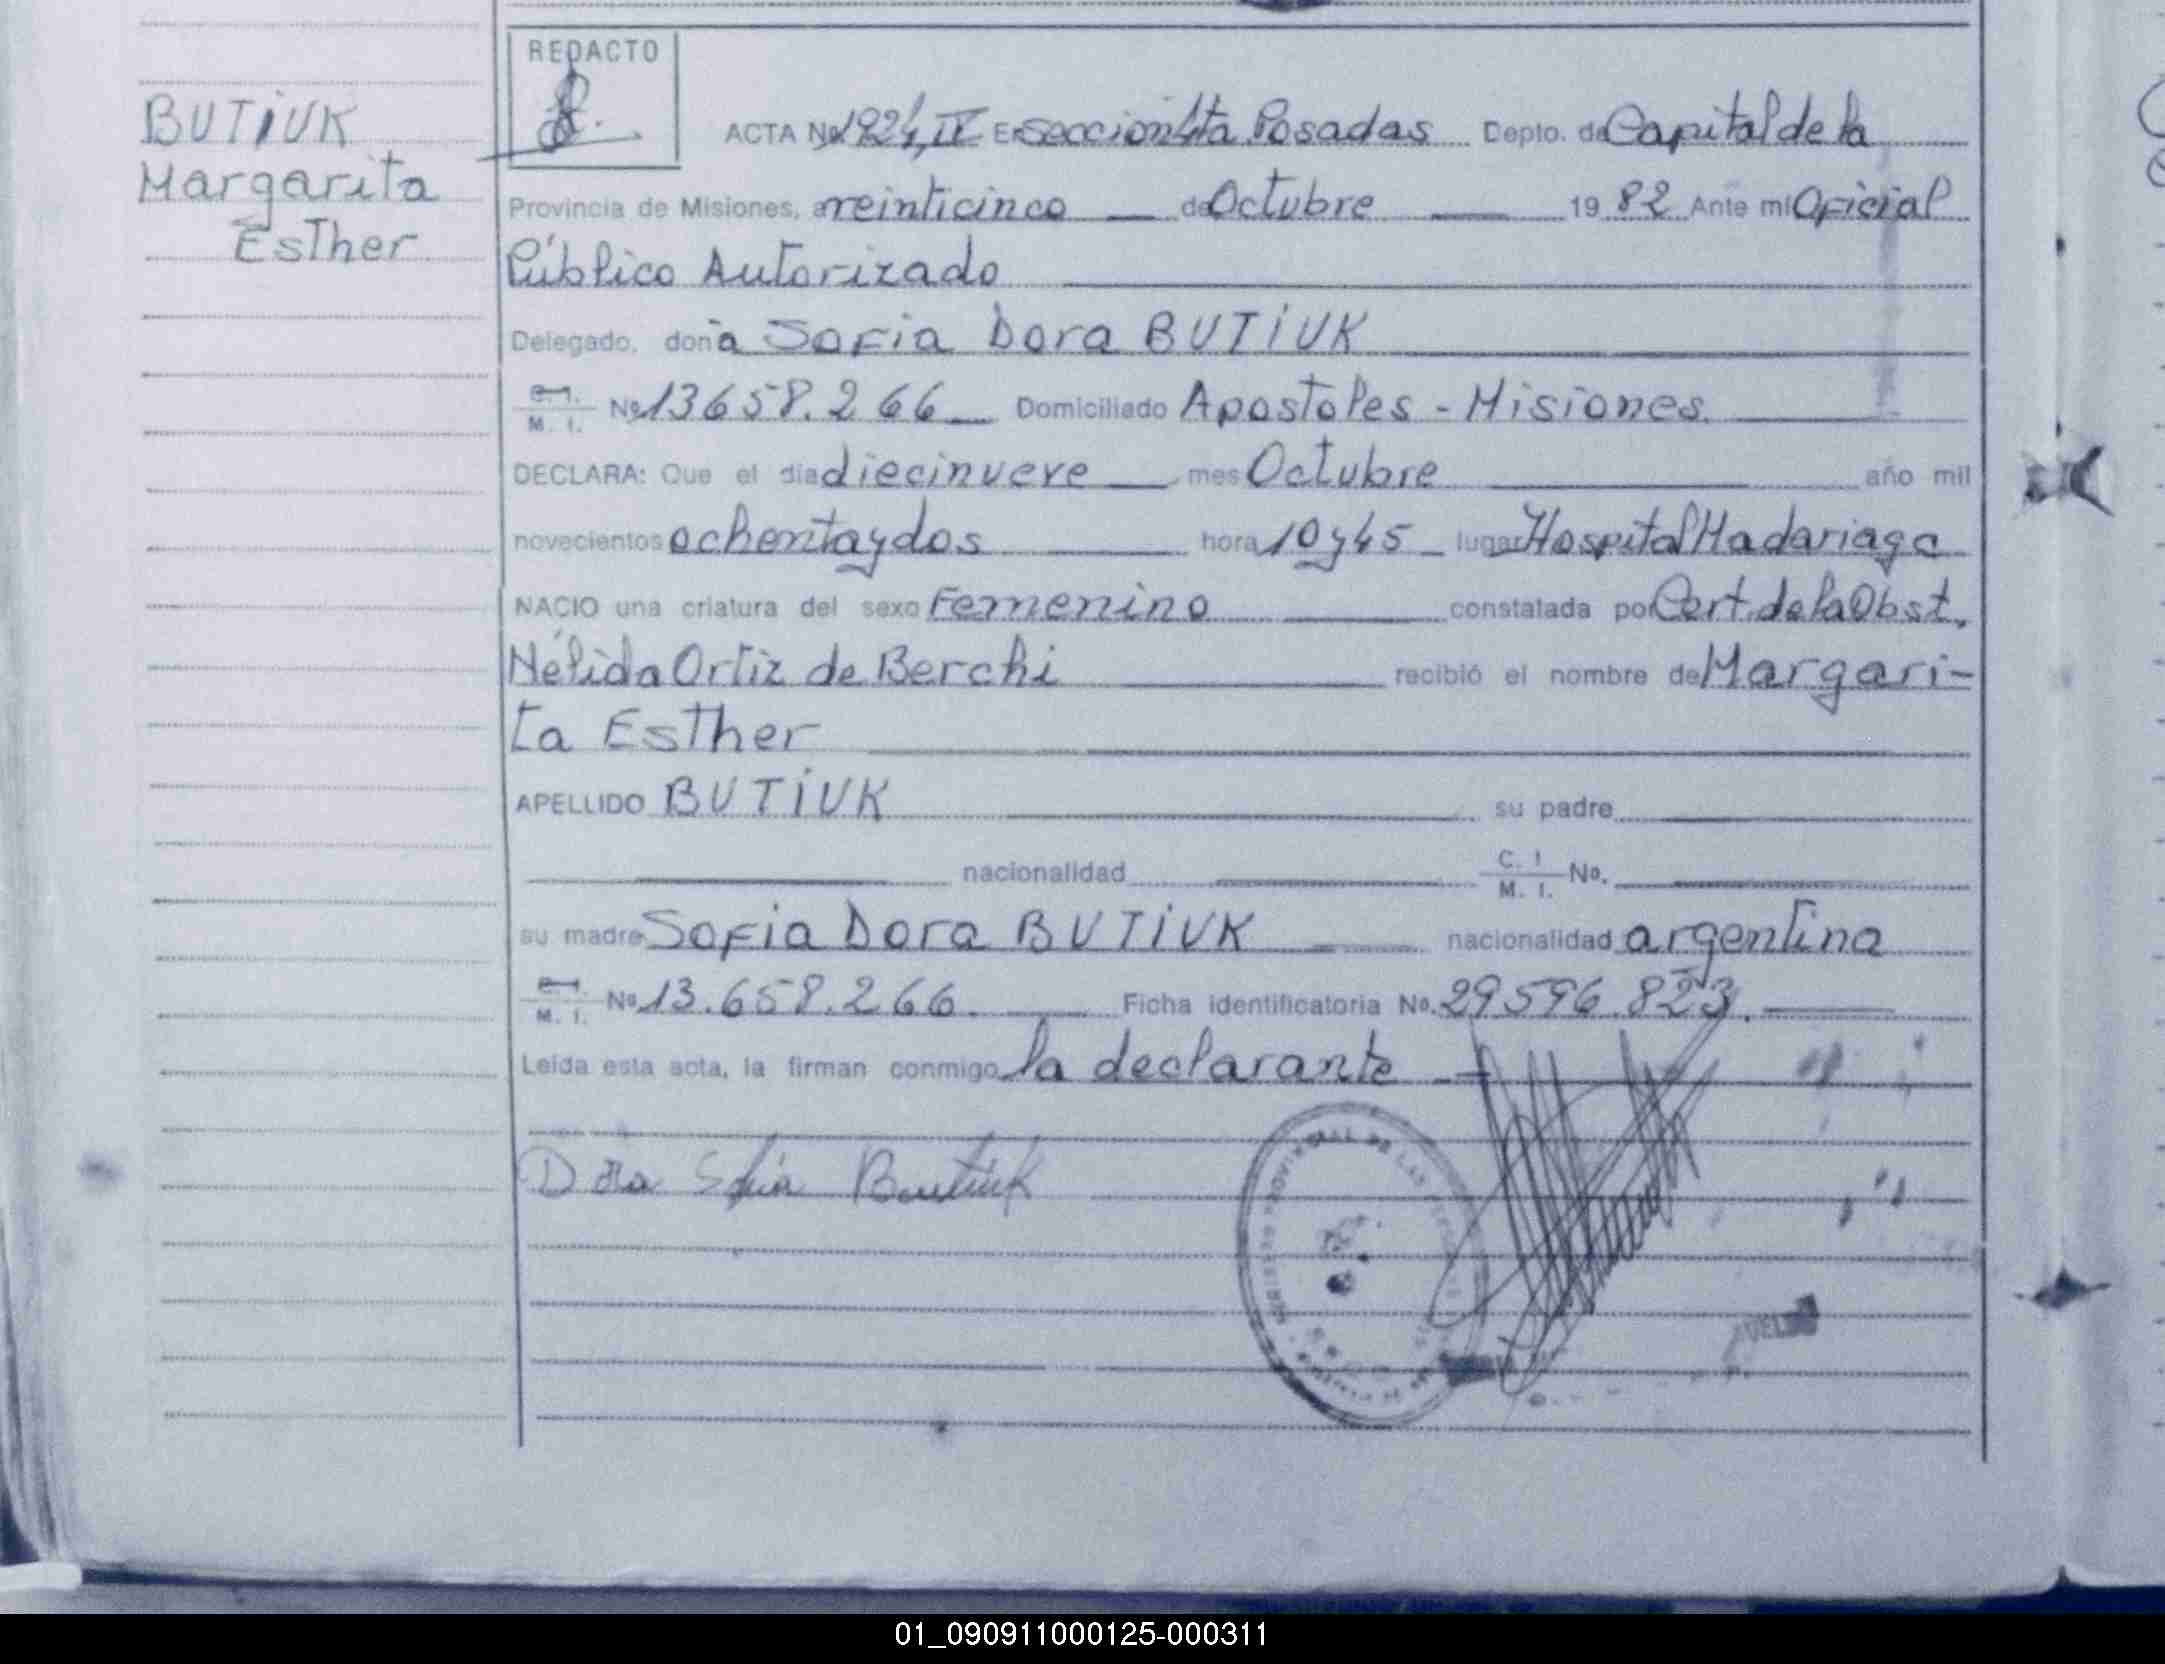 REDACTO
BUTIUK
Margarita
Esther
ACTA No 1924, IV En Sección 4ta Posadas Depto. de Capital de la
Provincia de Misiones, a veinticinco de Octubre 19 82 Ante mi Oficial
Público Autorizado
Delegado, doña Sofia Dora BUTIUK
C. I. M. I. No 13658.266 Domiciliado Apostoles - Misiones.
DECLARA: Que el día diecinueve mes Octubre año mil
novecientos ochenta y dos hora 10 y 45 lugar Hospital Madariaga
NACIO una criatura del sexo Femenino constatada por Cert. de la Obst.
Nélida Ortiz de Berchi recibió el nombre de Margari-
ta Esther
APELLIDO BUTIUK su padre
nacionalidad C. I M. I. No.
su madre Sofia Dora BUTIUK nacionalidad argentina
C. I. M. I. No 13.658.266. Ficha identificatoria No. 29596.823.
Leída esta acta, la firman conmigo la declarante
Dora Sofia Butiuk
01_090911000125-000311